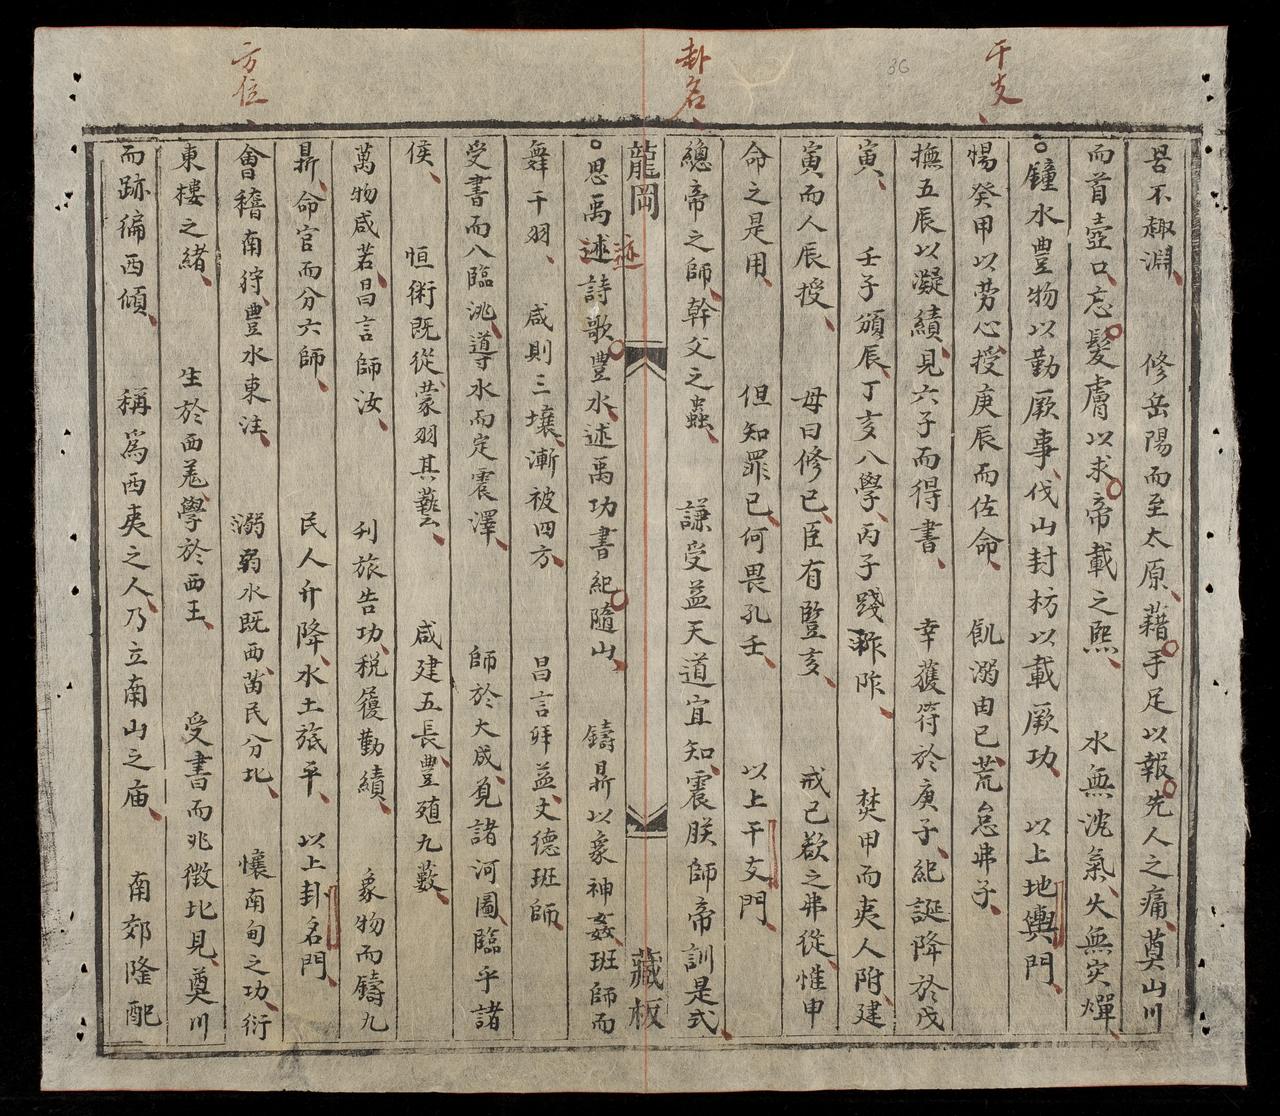 干支
卦名
方位
36
罟不趣淵、　修岳陽而至太原、藉手足以報先人之痛、奠山川
而首壺口、忘髮膚以求帝載之熙、　水無沈氣、火無灾燀、
鐘水豐物以勤厥事、伐山封枋以載厥功、　以上地輿門、
惕癸甲以劳心、授庚辰而佐命、　飢溺由已、荒怠弗子、
撫五辰以凝績、見六子而得書、　幸獲符於庚子、紀誕降於戊
寅、　壬子頒辰、丁亥八學、丙子踐祚阼、　焚甲而夷人附、建
寅而人辰授、　毋曰修已、臣有豎亥、　戒已欲之弗從、惟申
命之是用、　但知罪已、何畏孔壬、　以上干支門、
總帝之師、幹父之蠱、　謙受益天道宜知、震朕師帝訓是式、
龍岡　藏板
思禹迹詩歌豐水、述禹功書紀隨山、　鑄鼎以象神姦、班師而
迹
舞干羽、　咸則三壤、漸被四方、　昌言拜益、文德班師
受書而八臨洮、導水而定震澤、　師於大成、見諸河圖、臨乎諸
侯、　恒術既從、蒙羽其藝、　咸建五長、豐殖九藪、
萬物咸若、昌言師汝、　刋旅告功、税履勤績、　象物而鑄九
鼎、命官而分六師、　民人升降、水土旅平、　以上卦名門、
會稽南狩、豐水東注、　溺弱水既西、苗民分北、　懷南甸之功、衍
東樓之緒、　生於西羌、學於西王、　受書而兆徵北見、奠川
而跡徧西傾、　稱爲西夷之人、乃立南山之庙、　南郊隆配